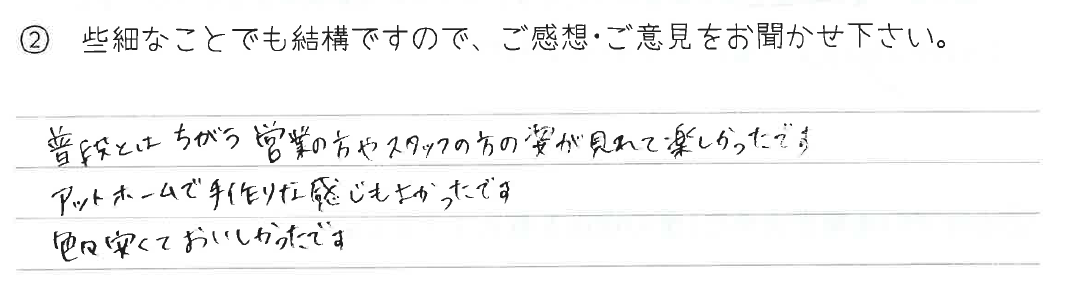 ② 些細なことでも結構ですので、ご感想・ご意見をお聞かせ下さい。
普段とは ちがう 営業の方やスタッフの方の姿が見れて楽しかったです
アットホームで手作りな感じもよかったです
色々安くておいしかったです